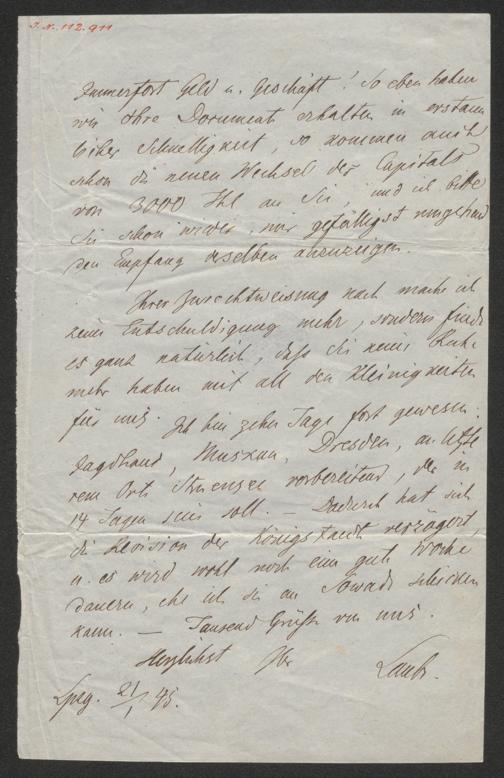 I.N. 112.911
Immerfort Geld u. Geschäft! So eben haben
wir Ihre Documente erhalten in erstaun
licher Schnelligkeit, so kommen auch
schon die neuen Wechsel des Capitals
von 3000 Thl an Sie, und ich bitte
Sie schon wieder, mir gefälligst umgehend
den Empfang derselben anzuzeigen.
Ihrer Zurechtweisung nach mache ich
keine Entschuldigung mehr, sondern finde
es ganz natürlich, daß Sie keine Ruhe
mehr haben mit all den Kleinigkeiten
für uns. Ich bin zehn Tage fort gewesen.
Jagdhaus, Muskau, Dresden, an letzte
rem Orte Struensee vorbereitend, der in
14 Tagen sein soll. — Dadurch hat sich
die Revision der verzögert,
u. es wird wohl noch eine gute Woche
dauern, ehe ich sie an schicken
kann. — Tausend Grüße von uns.
Herzlichst Ihr
Laube.
Lpzg. 21/1 45.